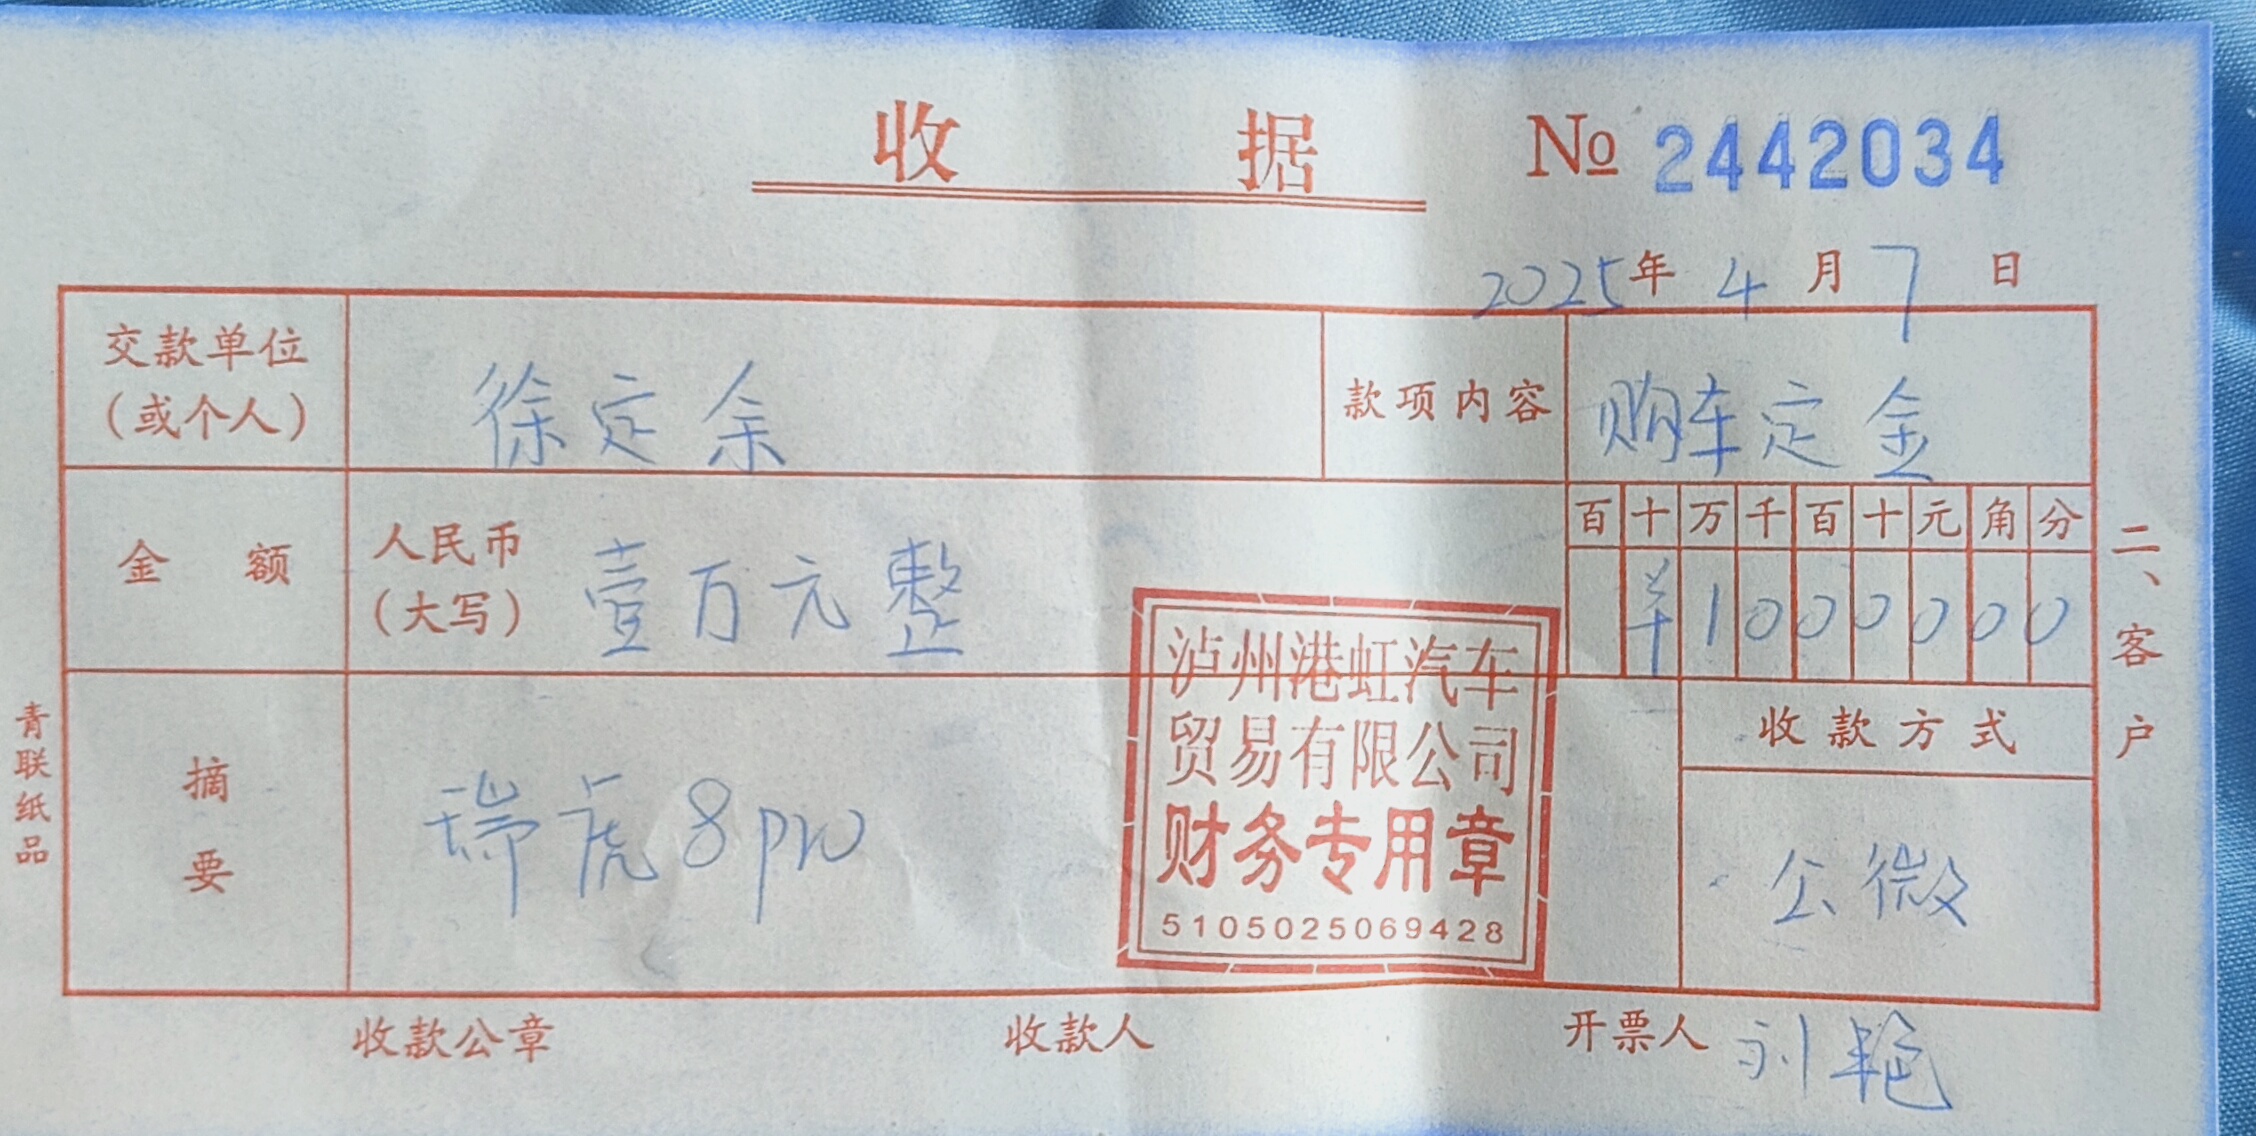 收 据 No 2442034
2025年 4月 7日
交款单位（或个人） 徐定余 款项内容 购车定金
金 额 人民币（大写） 壹万元整
百 十 万 千 百 十 元 角 分
¥ 1 0 0 0 0 0 0
摘要 瑞虎8pro
收款方式
公微
泸州港虹汽车
贸易有限公司
财务专用章
5105025069428
收款公章 收款人 开票人 刘艳
二、客户
青联纸品